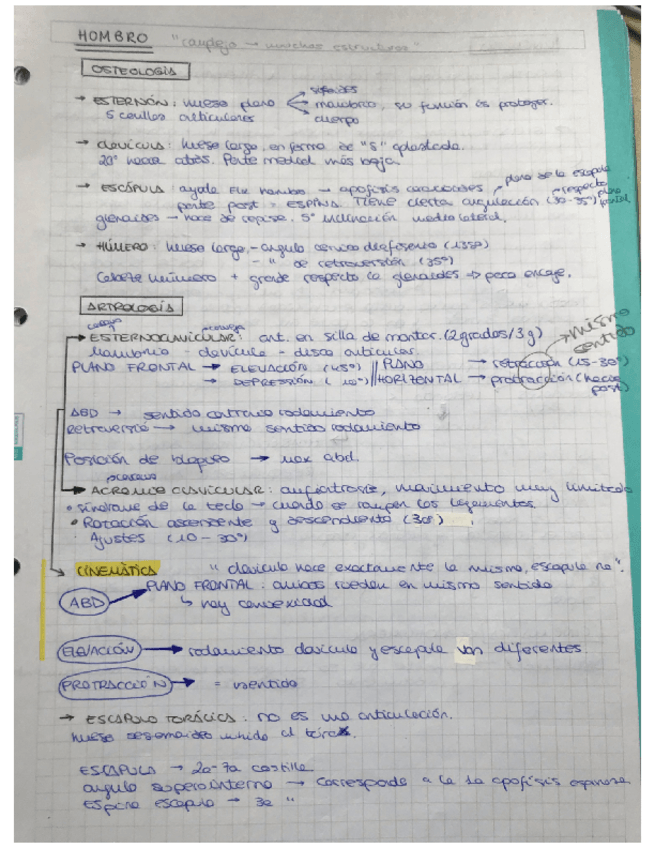 HOMBRO "complejo → muchas estructuras"
OSTEOLOGÍA
→ ESTERNÓN: hueso plano xifoides
manubrio, su función es proteger.
cuerpo
5 carillas articulares
→ CLAVÍCULA: hueso largo, en forma de "S" aplastada.
20° hacia atrás. Parte medial más baja.
→ ESCÁPULA: ayuda hombro → apófisis
plano de la escápula respecto plano frontal
parte post = ESPINA. TIENE cierta angulación (30-35°)
glenoides → hace de repisa. 5° inclinación medio lateral.
→ HÚMERO: hueso largo, - angulo cervico diafisario (135°)
- " de retroversión (35°)
Cabeza húmero + grande respecto la glenoides → poco encaje.
ARTROLOGÍA
→ ESTERNOCLAVICULAR: art. en silla de montar. (2 grados/3 g) → mismo sentido
Manubrio - clavícula - disco articular
PLANO FRONTAL → ELEVACIÓN (45°) || PLANO → retracción (15-30°)
→ DEPRESIÓN (10°) || HORIZONTAL → protracción (hacia post)
ABD → sentido contrario rodamiento
Retroversió → mismo sentido rodamiento
Posición de bloqueo → max abd.
→ ACROMIO CLAVICULAR: anfiartrosis, movimiento muy limitado
• síndrome de la tecla → cuando se rompen los ligamentos.
• Rotación ascendente y descendente (30°)
· Ajustes (10-30°)
CINEMÀTICA "clavícula hace exactamente lo mismo, escapula no".
ABD → PLANO FRONTAL: ambos rueden en mismo sentido
↳ hay convexidad
ELEVACIÓN → rodamiento clavícula y escapula van diferentes.
PROTRACCIÓN → = sentido
→ ESCAPULO TORÁCICA: no es una articulación.
hueso sesamoideo unido al tórax.
ESCÁPULA → 2a-7a costilla
angulo superointerno → corresponde a la 1a apófisis espinosa
Espina escapula → 3a "